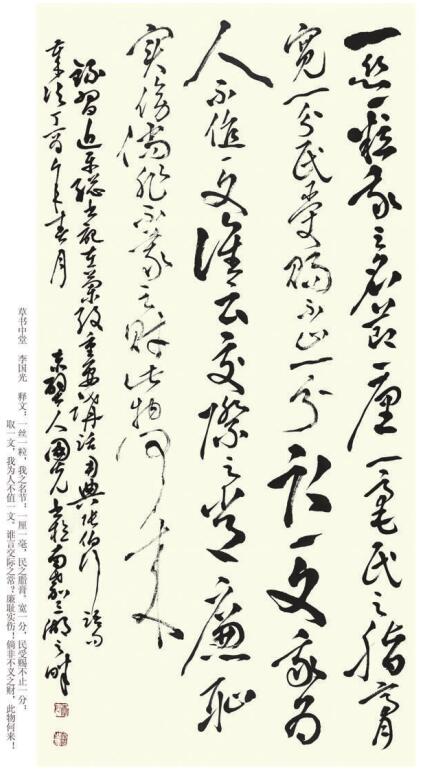 一丝一粒我之名节一厘一毫民之脂膏
宽一分民受赐不止一分取一文我为
人不值一文谁云交际之常廉耻
实伤倘非不义之财此物何来
习近平总书记在兰考重要讲话用典张伯行
丁酉 春月 人国光书於 湖之畔
草书中堂 李国光 释文：一丝一粒，我之名节；一厘一毫，民之脂膏。宽一分，民受赐不止一分；
取一文，我为人不值一文。谁言交际之常？廉耻实伤！倘非不义之财，此物何来！